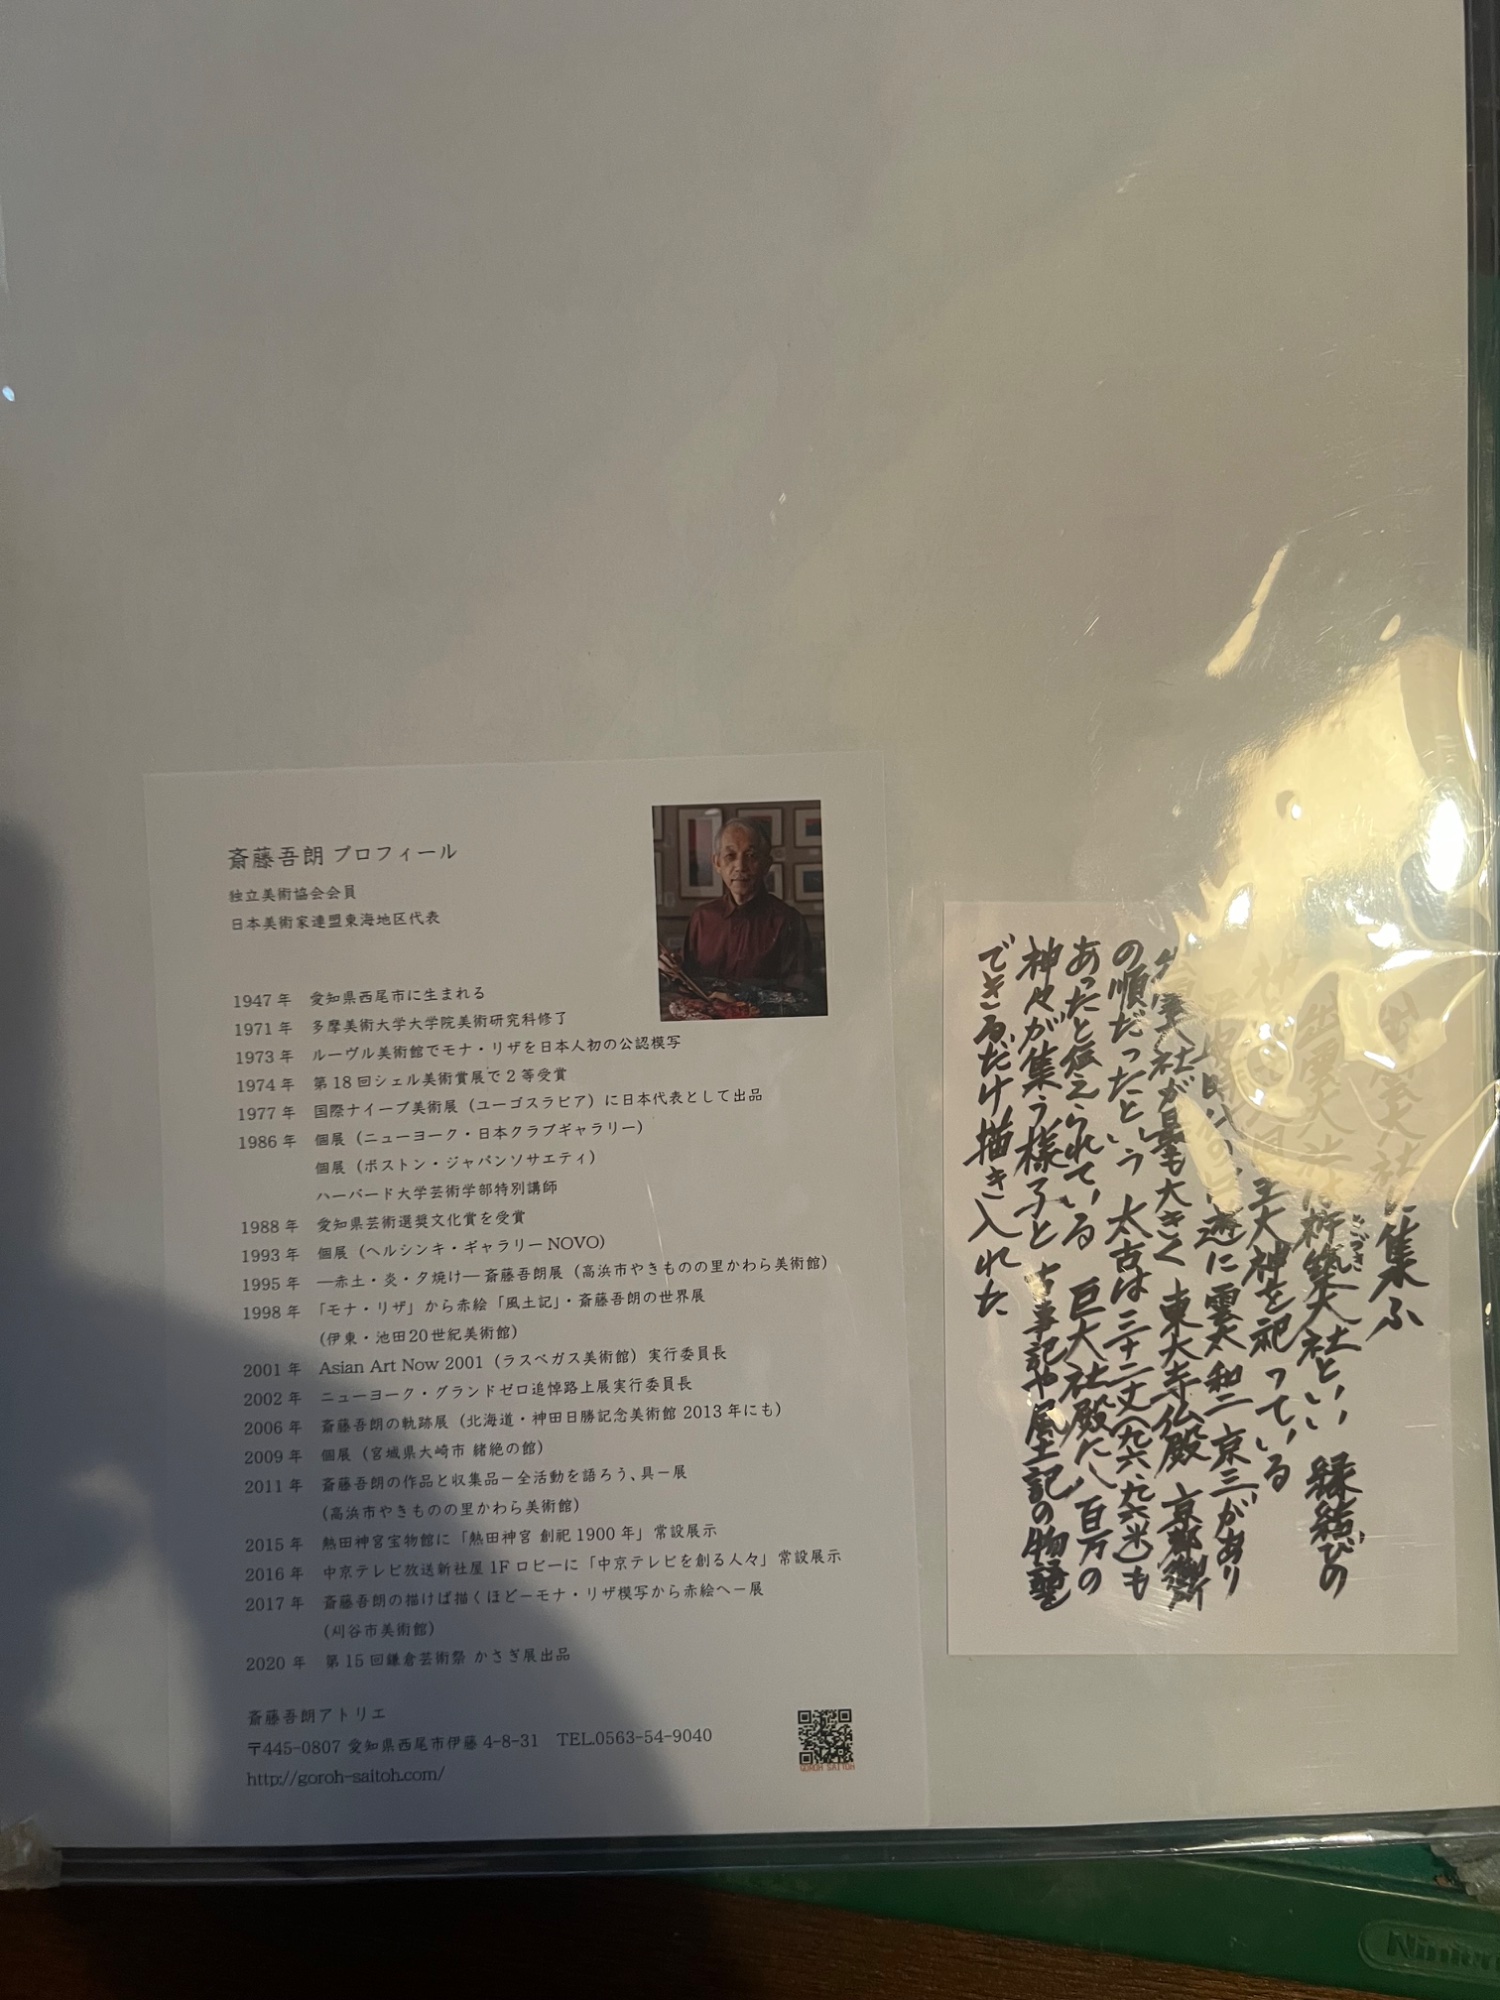 斎藤吾朗 プロフィール
独立美術協会会員
日本美術家連盟東海地区代表
1947年 愛知県西尾市に生まれる
1971年 多摩美術大学大学院美術研究科修了
1973年 ルーヴル美術館でモナ・リザを日本人初の公認模写
1974年 第18回シェル美術賞展で2等受賞
1977年 国際ナイーブ美術展（ユーゴスラビア）に日本代表として出品
1986年 個展（ニューヨーク・日本クラブギャラリー）
個展（ボストン・ジャパンソサエティ）
ハーバード大学芸術学部特別講師
1988年 愛知県芸術選奨文化賞を受賞
1993年 個展（ヘルシンキ・ギャラリーNOVO）
1995年 ―赤土・炎・夕焼け―斎藤吾朗展（高浜市やきものの里かわら美術館）
1998年 「モナ・リザ」から赤絵「風土記」・斎藤吾朗の世界展
(伊東・池田20世紀美術館)
2001年 Asian Art Now 2001（ラスベガス美術館）実行委員長
2002年 ニューヨーク・グランドゼロ追悼路上展実行委員長
2006年 斎藤吾朗の軌跡展（北海道・神田日勝記念美術館 2013年にも）
2009年 個展（宮城県大崎市 緒絶の館）
2011年 斎藤吾朗の作品と収集品－全活動を語ろう、具－展
(高浜市やきものの里かわら美術館)
2015年 熱田神宮宝物館に「熱田神宮 創祀1900年」常設展示
2016年 中京テレビ放送新社屋1Fロビーに「中京テレビを創る人々」常設展示
2017年 斎藤吾朗の描けば描くほど－モナ・リザ模写から赤絵へ－展
(刈谷市美術館)
2020年 第15回鎌倉芸術祭 かさぎ展出品
斎藤吾朗アトリエ
〒445-0807 愛知県西尾市伊藤4-8-31 TEL.0563-54-9040
http://goroh-saitoh.com/
GOROH SAITOH
出雲大社に集ふ
出雲大社は杵築大社といい 縁結びの
大神を祀っている
に雲太 和二 京三があり
出雲大社が最も大きく 東大寺仏殿 京都御所
の順だったという 太古は三十二丈(九六・九六米)も
あったと伝えられている 巨大社殿に八百万の
神々が集う様子と 古事記や風土記の物語
できるだけ描き入れた